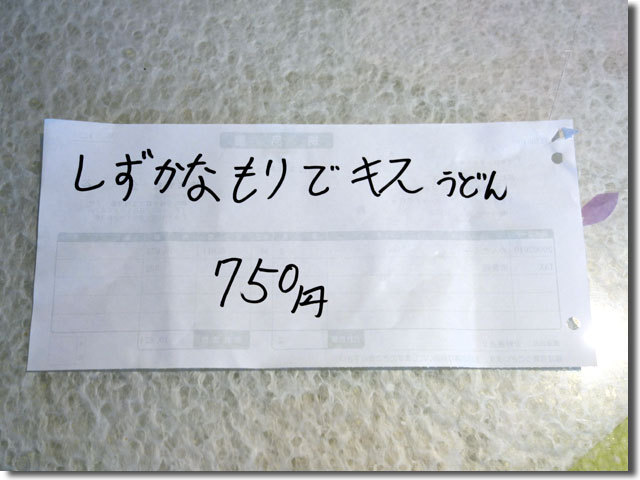 しずかなもりでキスうどん
750円